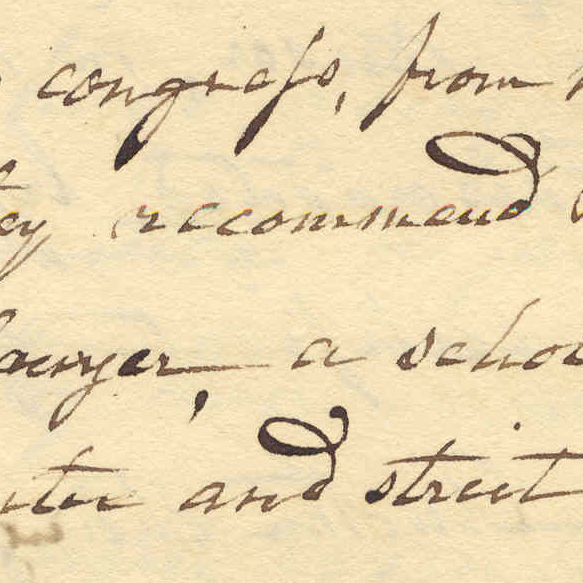 congreſs, from
recommend
lawyer, a scho
and strict